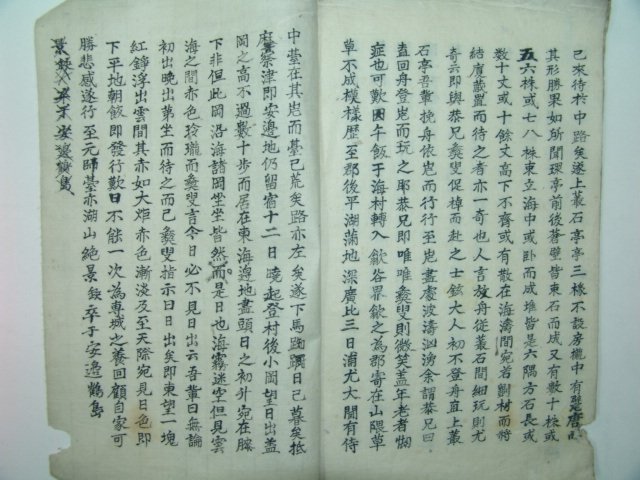 己來待於中路矣遂上叢石亭亭三椽不設房櫳中有
其形勝果如所聞環亭前後蒼壁皆束石而成又有數十株或
五六株或七八株束立海中或卧而成堆皆是六隅方石長或
數十丈或十餘丈高下不齊或有散在海濤間宛若斵材而將
結廈藏置而待之者亦一奇也人言放舟從叢石間細玩則尤
奇云即與恭兄 叟促棹而赴之士鉉大人初不登舟直上叢
石亭吾輩挽舟依岜而行行至岜盡處波濤汹湧余謂恭兄曰
盍回舟登岜而玩之耶恭兄即唯唯 叟則微笑盖年老者怕
症也可歎回午飯于海村轉入歙谷界歙之為郡寄在山隈草
草不成模樣歷至郡後平湖蒲地深廣比三日浦尤大閒有侍
中臺在其岜而臺已荒矣路亦左矣遂下馬踟躕日已暮矣抵
 祭津即安邊地仍留宿十二日曉起登村後小岡望日出盖
岡之高不過數十步而居在東海邊地盡頭日之初升宛在 
下非但此岡沿海諸岡坐坐皆然而是日也海霧迷空但見雲
海之間赤色玲瓏而 叟言今日必不見日出云吾輩曰無論
初出晚出第坐而待之而已 叟指示曰日出矣即東望一塊
紅錚浮出雲間其赤如大炬赤色漸淡及至天際宛見日色即
下平地朝飯即發行歎日不能一次為專城之養回顧自家可
勝悲感遂行至元師臺亦湖山絶景 卒子安邊鶴烏